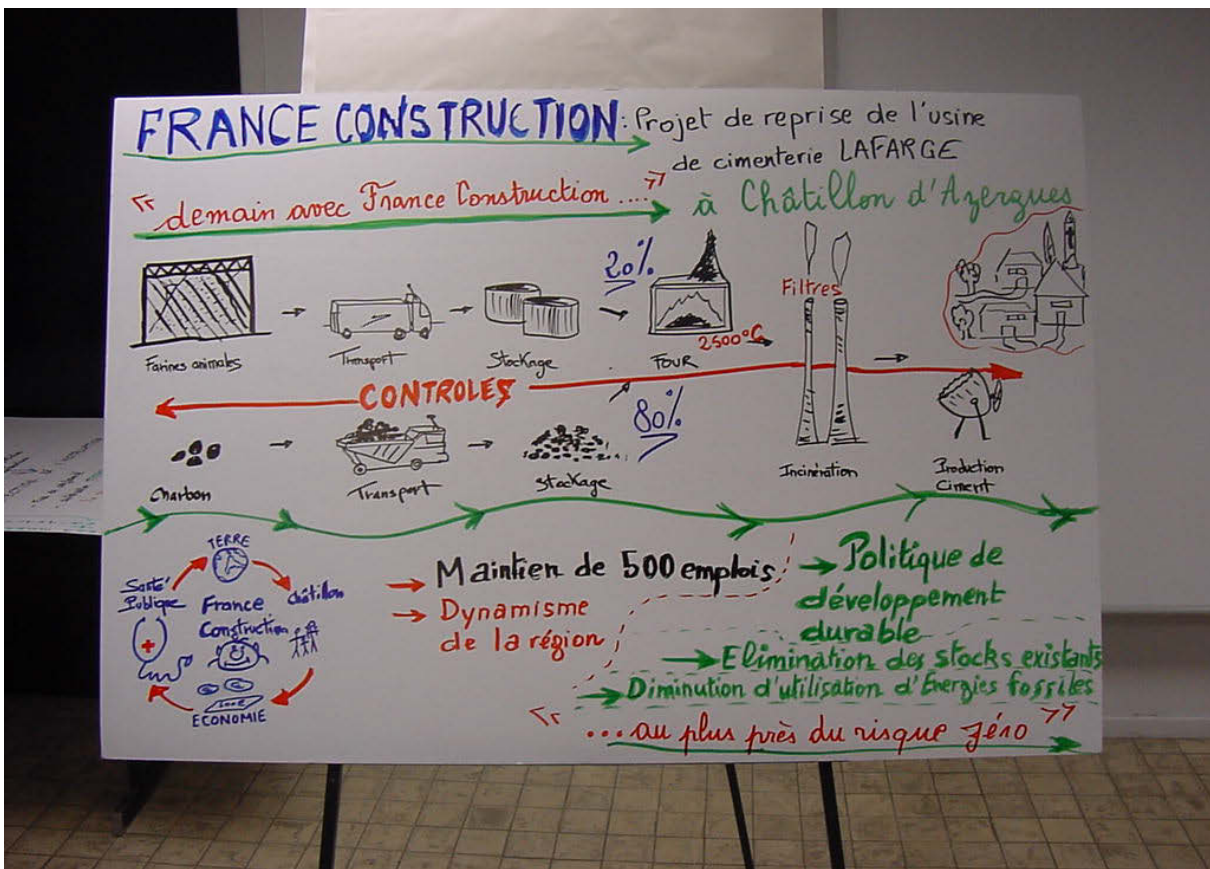 FRANCE CONSTRUCTION : Projet de reprise de l'usine
de cimenterie LAFARGE
à Châtillon d'Azergues
" demain avec France Construction .... "
20%
Filtres
2500°C
Farines animales
Transport
Stockage
FOUR
CONTROLES
80%
Charbon
Transport
Stockage
Incinération
Production
Ciment
TERRE
Santé
Publique
Châtillon
France
Construction
ECONOMIE
Maintien de 500 emplois
Dynamisme
de la région
Politique de
développement
durable
Elimination des stocks existants
Diminution d'utilisation d'Énergies fossiles
" ... au plus près du risque zéro "